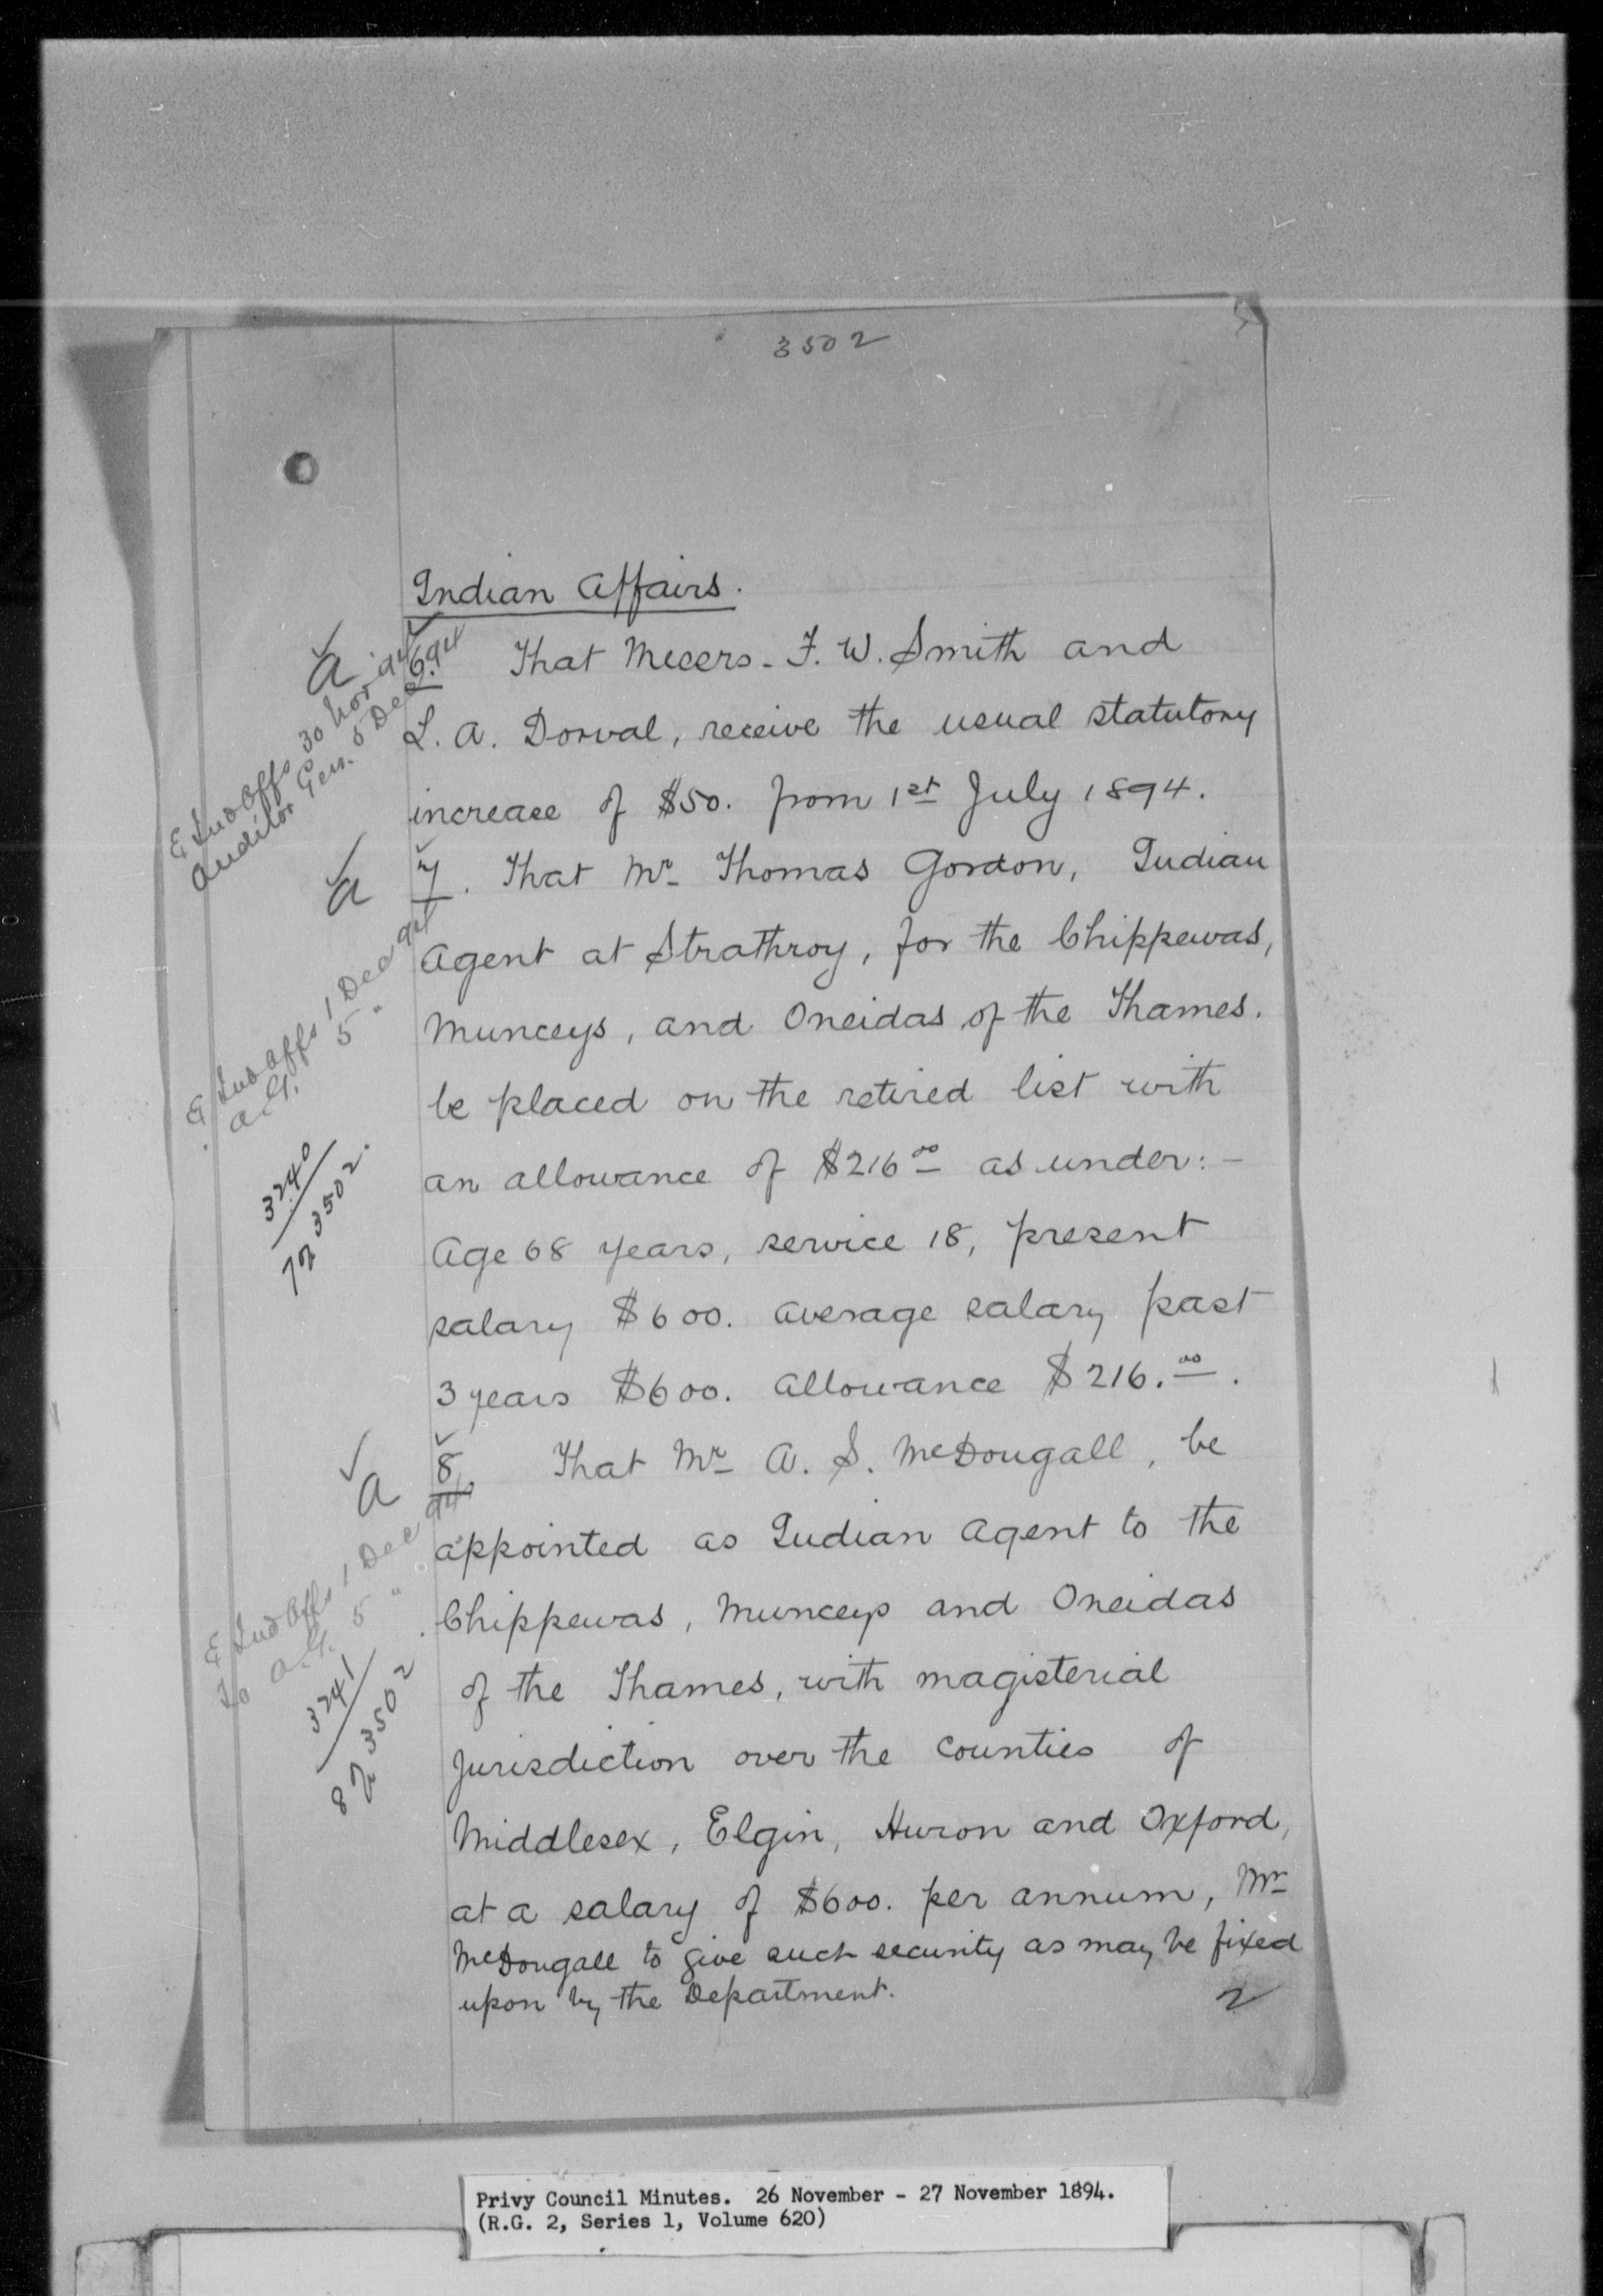 3502
Indian Affairs.
6. That Messrs. F. W. Smith and
L. A. Dorval, receive the usual statutory
increase of $50. from 1st July 1894.
7. That Mr Thomas Gordon, Indian
Agent at Strathroy, for the Chippewas,
Munceys, and Oneidas of the Thames.
be placed on the retired list with
an allowance of $216 00 as under:—
Age 68 years, service 18, present
salary $600. average salary past
3 years $600. allowance $216. 00.
8 That Mr A. S. McDougall, be
appointed as Indian Agent to the
Chippewas, Munceys and Oneidas
of the Thames, with magisterial
Jurisdiction over the Counties of
Middlesex, Elgin, Huron and Oxford,
at a salary of $600. per annum, Mr
McDougall to give such security as may be fixed
upon by the Department.
2
a
E Ind Affs 30 Nov '94
Auditor Gen. 5 Dec 94
a
E Ind Affs 1 Dec 94
A.G. 5 "
3240
7 3502.
a
E Ind Affs 1 Dec 94
To A.G. 5 "
3241
8 3502
Privy Council Minutes. 26 November - 27 November 1894.
(R.G. 2, Series 1, Volume 620)